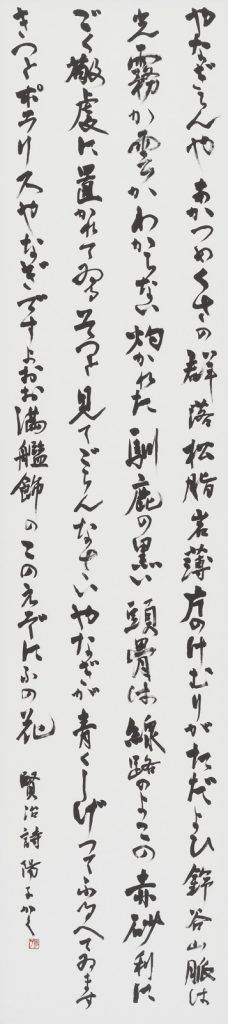 やなぎらんやあかつめくさの群落松脂岩薄片のけむりがただよひ鈴谷山脈は
光霧か雲かわからない灼かれた馴鹿の黒い頭骨は線路のよこの赤砂利に
ごく敬虔に置かれてゐるそつと見てごらんなさいやなぎが青くしげつてふるへてゐます
きつとポラリスやなぎですよおお満艦飾のこのえぞにふの花
賢治詩陽子かく